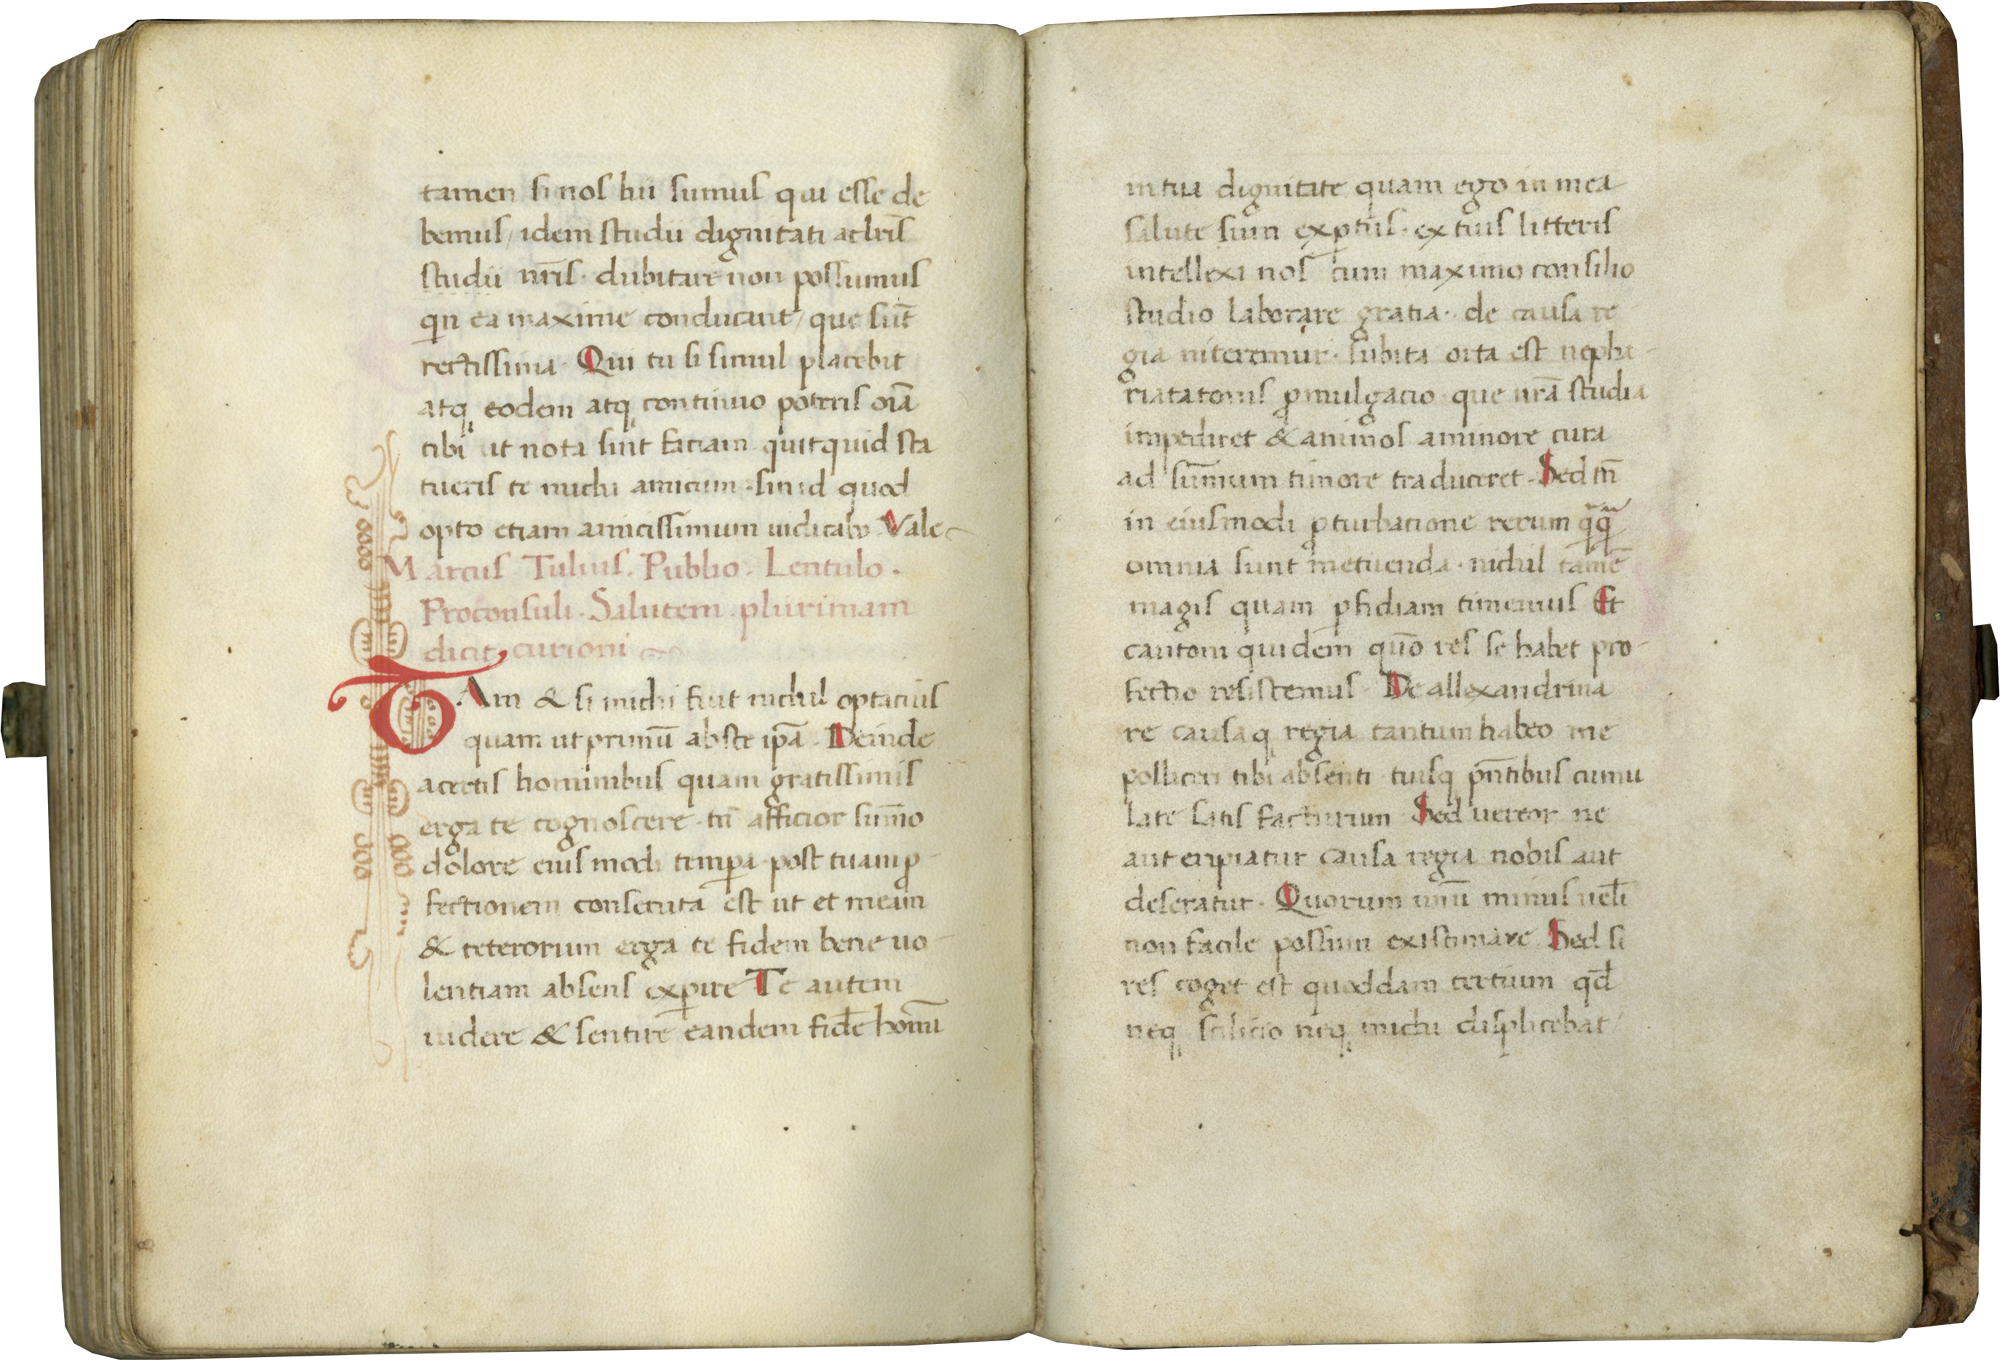 tamen si nos hii sumus qui esse de
bemus / idem studii dignitati ac lr̄is
studii nr̄is · dubitare non possumus
qn ea maxime conducant / que sūt
rectissima · Qui tu si simul placebit
atq eodem atq continuo poteris oīa
tibi ut nota sint faciam quitquid sta
tueris te michi amicum · sin id quod
opto etiam amicissimum iudicabo Vale
Marcus Tulius · Publio · Lentulo ·
Proconsuli · Salutem · plurimam
dicit curioni
TAm & si michi fiut nichil optacius
quam ut primū abste ipā · Deinde
acertis hominibus quam gratissimis
erga te cognoscere · tn̄ afficior sum̄o
dolore eius modi tempa post tuam p
fectionem consecuta est ut et meam
& ceterorum erga te fidem bene uo-
lentiam absens expire Te autem
uidere & sentire eandem fidē homū
in tua dignitate quam ego in mea
salute sum exptus · ex tuis litteris
intellexi nos cum maximo consilio
studio laborare gratia · de causa re
gia niteremur · subita orta est nepha-
ria tatonis pmulgacio · que nrā studia
impediret & animos aminore cura
ad sum̄um timore traduceret · Sed tn̄
in eiusmodi pturbatione rerum q̄q̄
omnia sunt metuenda · nichil tamē
magis quam pfidiam timemus Et
catoni quidem quō res se habet pro-
fectio resistemus · De allexandrina
re causaq regia tantum habeo me
polliceri tibi absenti · tuisq pn̄tibus cumu
late satis facturum Sed uereor ne
aut eripiatur causa regia nobis aut
deseratur · Quorum utrū minus uelī
non facile possum existimare Sed si
res coget est quoddam tertium qd̄
neq silicio neq michi displicebat /